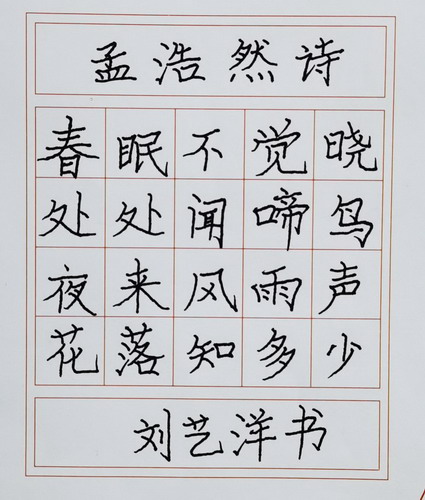 孟浩然诗
春眠不觉晓
处处闻啼鸟
夜来风雨声
花落知多少
刘艺洋书